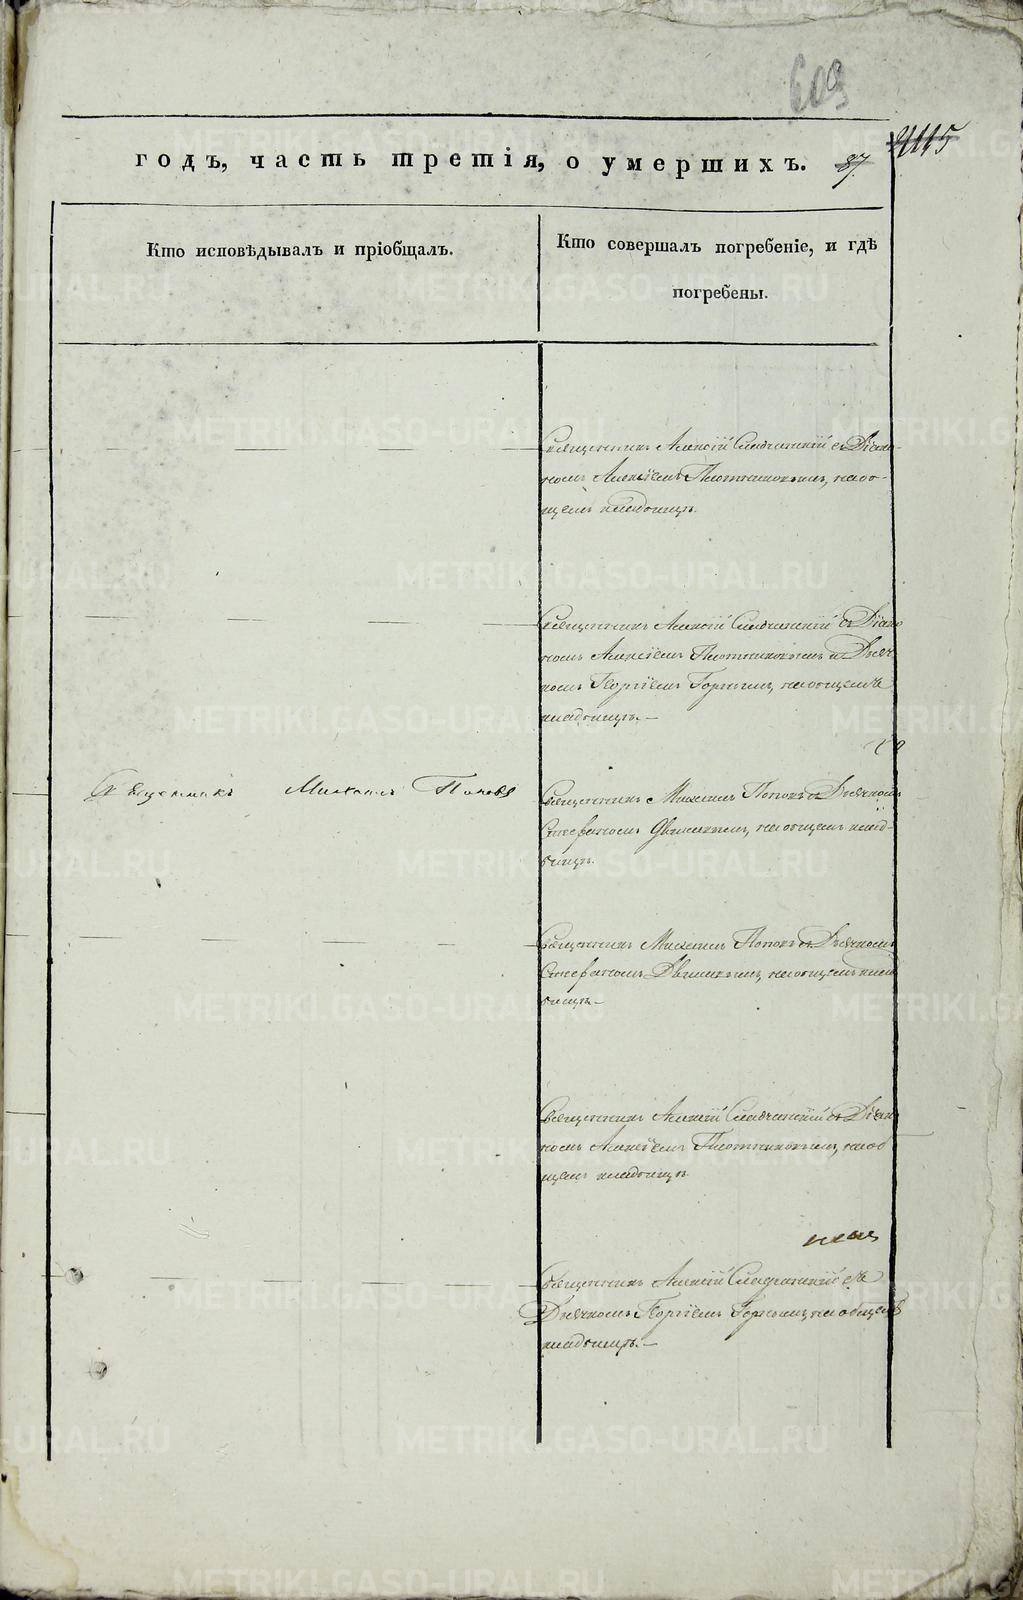 609
годъ, часть третія, о умершихъ. 37
4115
Кто исповѣдывалъ и пріобщалъ.
Кто совершалъ погребеніе, и гдѣ
погребены.
Священникъ Алексій съ Діако-
номъ Алексіемъ Плотниковымъ, на об-
щемъ кладбищѣ.
Священникъ Алексій съ Діако
номъ Алексіемъ Плотниковымъ и Дьяч
комъ Георгіемъ Горнымъ, на общемъ
кладбищѣ.—
Священникъ Михаилъ Поповъ
Священникъ Михаилъ Поповъ съ Дьячкомъ
Стефаномъ на общемъ клад-
бищѣ.
Священникъ Михаилъ Поповъ съ Дьячкомъ
Стефаномъ на общемъ клад
бищѣ.—
Священникъ Алексій съ Діако
номъ Алексіемъ Плотниковымъ, на об
щемъ кладбищѣ
Священникъ Алексій съ
Дьячкомъ Георгіемъ Горнымъ, на общемъ
кладбищѣ.—
METRIKI.GASO-URAL.RU